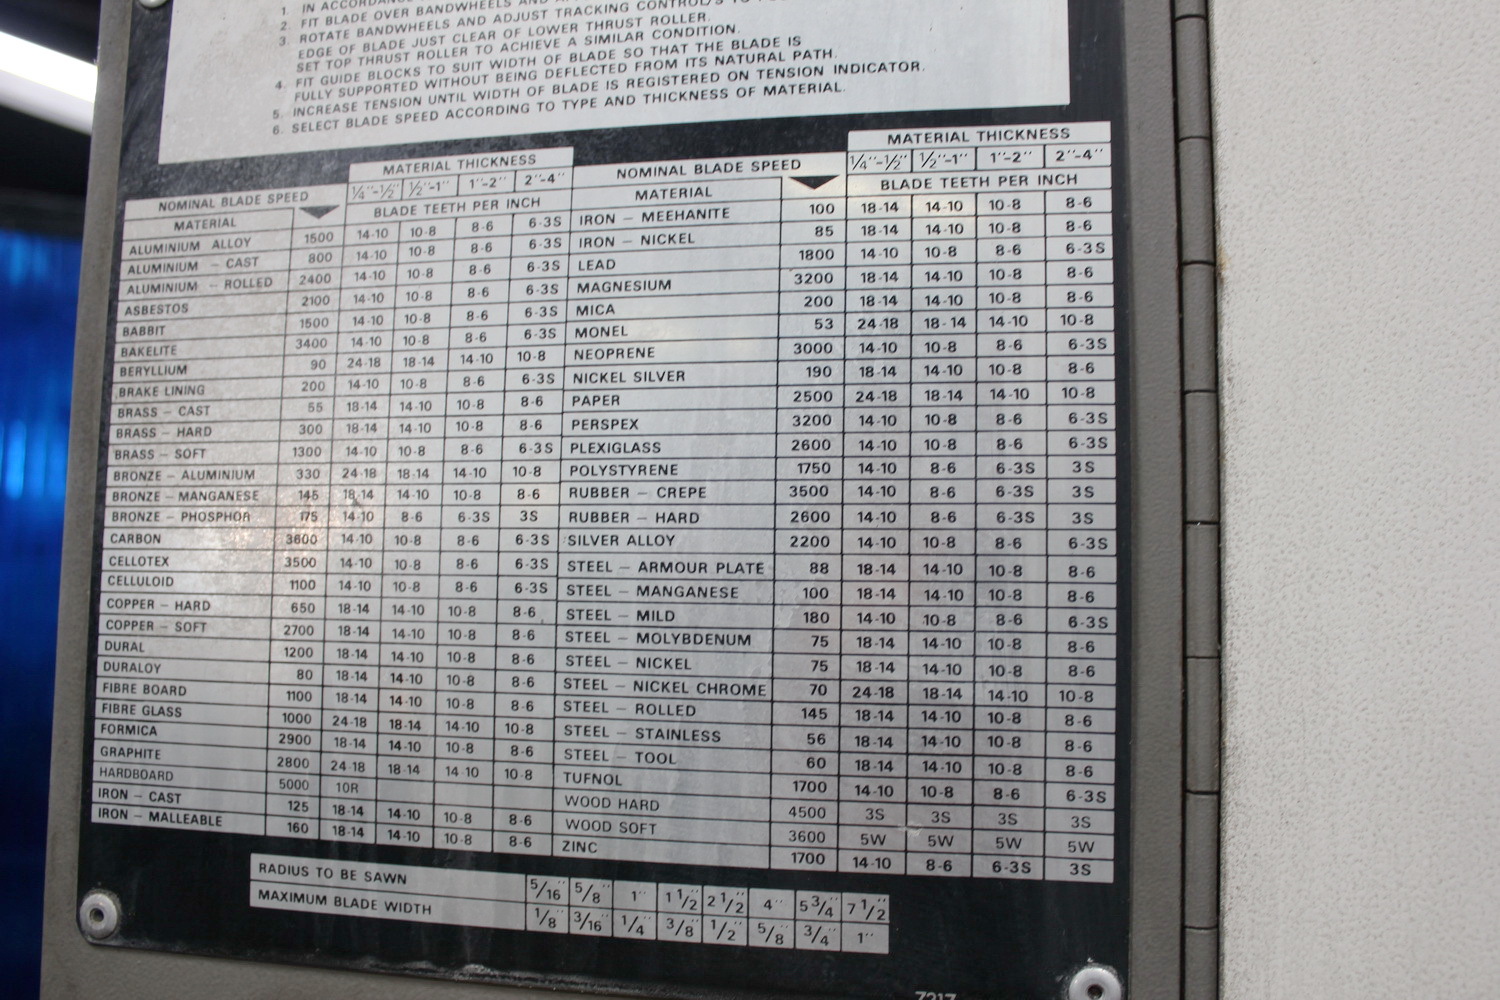 1. IN ACCORDANCE
2. FIT BLADE OVER BANDWHEELS AND
3. ROTATE BANDWHEELS AND ADJUST TRACKING CONTROL/S TO
EDGE OF BLADE JUST CLEAR OF LOWER THRUST ROLLER.
SET TOP THRUST ROLLER TO ACHIEVE A SIMILAR CONDITION.
4. FIT GUIDE BLOCKS TO SUIT WIDTH OF BLADE SO THAT THE BLADE IS
FULLY SUPPORTED WITHOUT BEING DEFLECTED FROM ITS NATURAL PATH.
5. INCREASE TENSION UNTIL WIDTH OF BLADE IS REGISTERED ON TENSION INDICATOR.
6. SELECT BLADE SPEED ACCORDING TO TYPE AND THICKNESS OF MATERIAL.
MATERIAL THICKNESS
NOMINAL BLADE SPEED 1/4"-1/2" 1/2"-1" 1"-2" 2"-4"
MATERIAL BLADE TEETH PER INCH
ALUMINIUM ALLOY 1500 14-10 10-8 8-6 6-3S
ALUMINIUM – CAST 800 14-10 10-8 8-6 6-3S
ALUMINIUM – ROLLED 2400 14-10 10-8 8-6 6-3S
ASBESTOS 2100 14-10 10-8 8-6 6-3S
BABBIT 1500 14-10 10-8 8-6 6-3S
BAKELITE 3400 14-10 10-8 8-6 6-3S
BERYLLIUM 90 24-18 18-14 14-10 10-8
BRAKE LINING 200 14-10 10-8 8-6 6-3S
BRASS – CAST 55 18-14 14-10 10-8 8-6
BRASS – HARD 300 18-14 14-10 10-8 8-6
BRASS – SOFT 1300 14-10 10-8 8-6 6-3S
BRONZE – ALUMINIUM 330 24-18 18-14 14-10 10-8
BRONZE – MANGANESE 145 18-14 14-10 10-8 8-6
BRONZE – PHOSPHOR 175 14-10 8-6 6-3S 3S
CARBON 3600 14-10 10-8 8-6 6-3S
CELLOTEX 3500 14-10 10-8 8-6 6-3S
CELLULOID 1100 14-10 10-8 8-6 6-3S
COPPER – HARD 650 18-14 14-10 10-8 8-6
COPPER – SOFT 2700 18-14 14-10 10-8 8-6
DURAL 1200 18-14 14-10 10-8 8-6
DURALOY 80 18-14 14-10 10-8 8-6
FIBRE BOARD 1100 18-14 14-10 10-8 8-6
FIBRE GLASS 1000 24-18 18-14 14-10 10-8
FORMICA 2900 18-14 14-10 10-8 8-6
GRAPHITE 2800 24-18 18-14 14-10 10-8
HARDBOARD 5000 10R
IRON – CAST 125 18-14 14-10 10-8 8-6
IRON – MALLEABLE 160 18-14 14-10 10-8 8-6
MATERIAL THICKNESS
NOMINAL BLADE SPEED 1/4"-1/2" 1/2"-1" 1"-2" 2"-4"
MATERIAL BLADE TEETH PER INCH
IRON – MEEHANITE 100 18-14 14-10 10-8 8-6
IRON – NICKEL 85 18-14 14-10 10-8 8-6
LEAD 1800 14-10 10-8 8-6 6-3S
MAGNESIUM 3200 18-14 14-10 10-8 8-6
MICA 200 18-14 14-10 10-8 8-6
MONEL 53 24-18 18-14 14-10 10-8
NEOPRENE 3000 14-10 10-8 8-6 6-3S
NICKEL SILVER 190 18-14 14-10 10-8 8-6
PAPER 2500 24-18 18-14 14-10 10-8
PERSPEX 3200 14-10 10-8 8-6 6-3S
PLEXIGLASS 2600 14-10 10-8 8-6 6-3S
POLYSTYRENE 1750 14-10 8-6 6-3S 3S
RUBBER – CREPE 3500 14-10 8-6 6-3S 3S
RUBBER – HARD 2600 14-10 8-6 6-3S 3S
SILVER ALLOY 2200 14-10 10-8 8-6 6-3S
STEEL – ARMOUR PLATE 88 18-14 14-10 10-8 8-6
STEEL – MANGANESE 100 18-14 14-10 10-8 8-6
STEEL – MILD 180 14-10 10-8 8-6 6-3S
STEEL – MOLYBDENUM 75 18-14 14-10 10-8 8-6
STEEL – NICKEL 75 18-14 14-10 10-8 8-6
STEEL – NICKEL CHROME 70 24-18 18-14 14-10 10-8
STEEL – ROLLED 145 18-14 14-10 10-8 8-6
STEEL – STAINLESS 56 18-14 14-10 10-8 8-6
STEEL – TOOL 60 18-14 14-10 10-8 8-6
TUFNOL 1700 14-10 10-8 8-6 6-3S
WOOD HARD 4500 3S 3S 3S 3S
WOOD SOFT 3600 5W 5W 5W 5W
ZINC 1700 14-10 8-6 6-3S 3S
RADIUS TO BE SAWN 5/16" 5/8" 1" 1 1/2" 2 1/2" 4" 5 3/4" 7 1/2"
MAXIMUM BLADE WIDTH 1/8" 3/16" 1/4" 3/8" 1/2" 5/8" 3/4" 1"